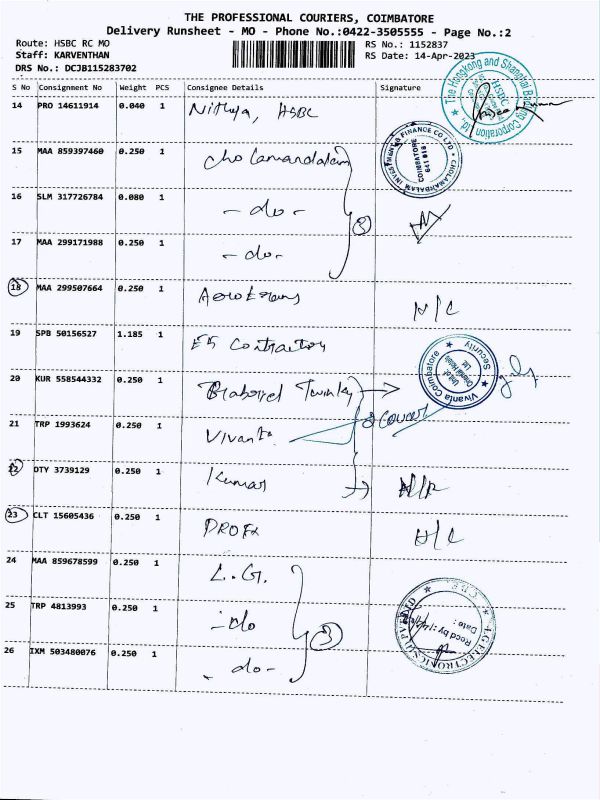 THE PROFESSIONAL COURIERS, COIMBATORE
Delivery Runsheet - MO - Phone No.:0422-3505555 - Page No.:2
Route: HSBC RC MO
RS No.: 1152837
Staff: KARVENTHAN
RS Date: 14-Apr-2023
DRS No.: DCJB115283702
S No Consignment No Weight PCS Consignee Details Signature
14 PRO 14611914 0.040 1 Nithya, HSBC
The Hongkong and Shanghai Banking Corporation Ltd.
HSBC
15 MAA 859397460 0.250 1 Cholamandalam
CHOLAMANDALAM INVESTMENT & FINANCE CO LTD
COIMBATORE
641 018
16 SLM 317726784 0.080 1 -do-
3
17 MAA 299171988 0.250 1 -do-
18 MAA 299507664 0.250 1 H/C
19 SPB 50156527 1.185 1 Contractor
20 KUR 558544332 0.250 1 Twinky
Vivanta Coimbatore
Security
Unit of
Oriental Hotels
Ltd.
21 TRP 1993624 0.250 1 Vivanta
22 OTY 3739129 0.250 1 Kumar
23 CLT 15605436 0.250 1 H/C
24 MAA 859678599 0.250 1 L.G.
25 TRP 4813993 0.250 1 -do
3
LG ELECTRONICS (I) PVT LTD
Recd by :
Date :
26 IXM 503480076 0.250 1 -do-